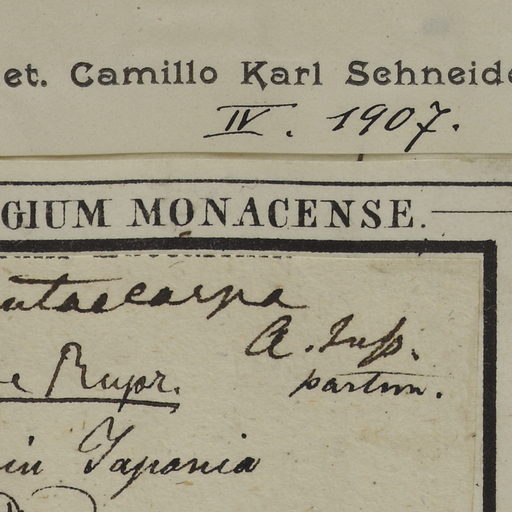 et. Camillo Karl Schneide
IV. 1907.
GIUM MONACENSE.
utaecarpa
A. Juss.
partim.
e Rupr.
in Japonia